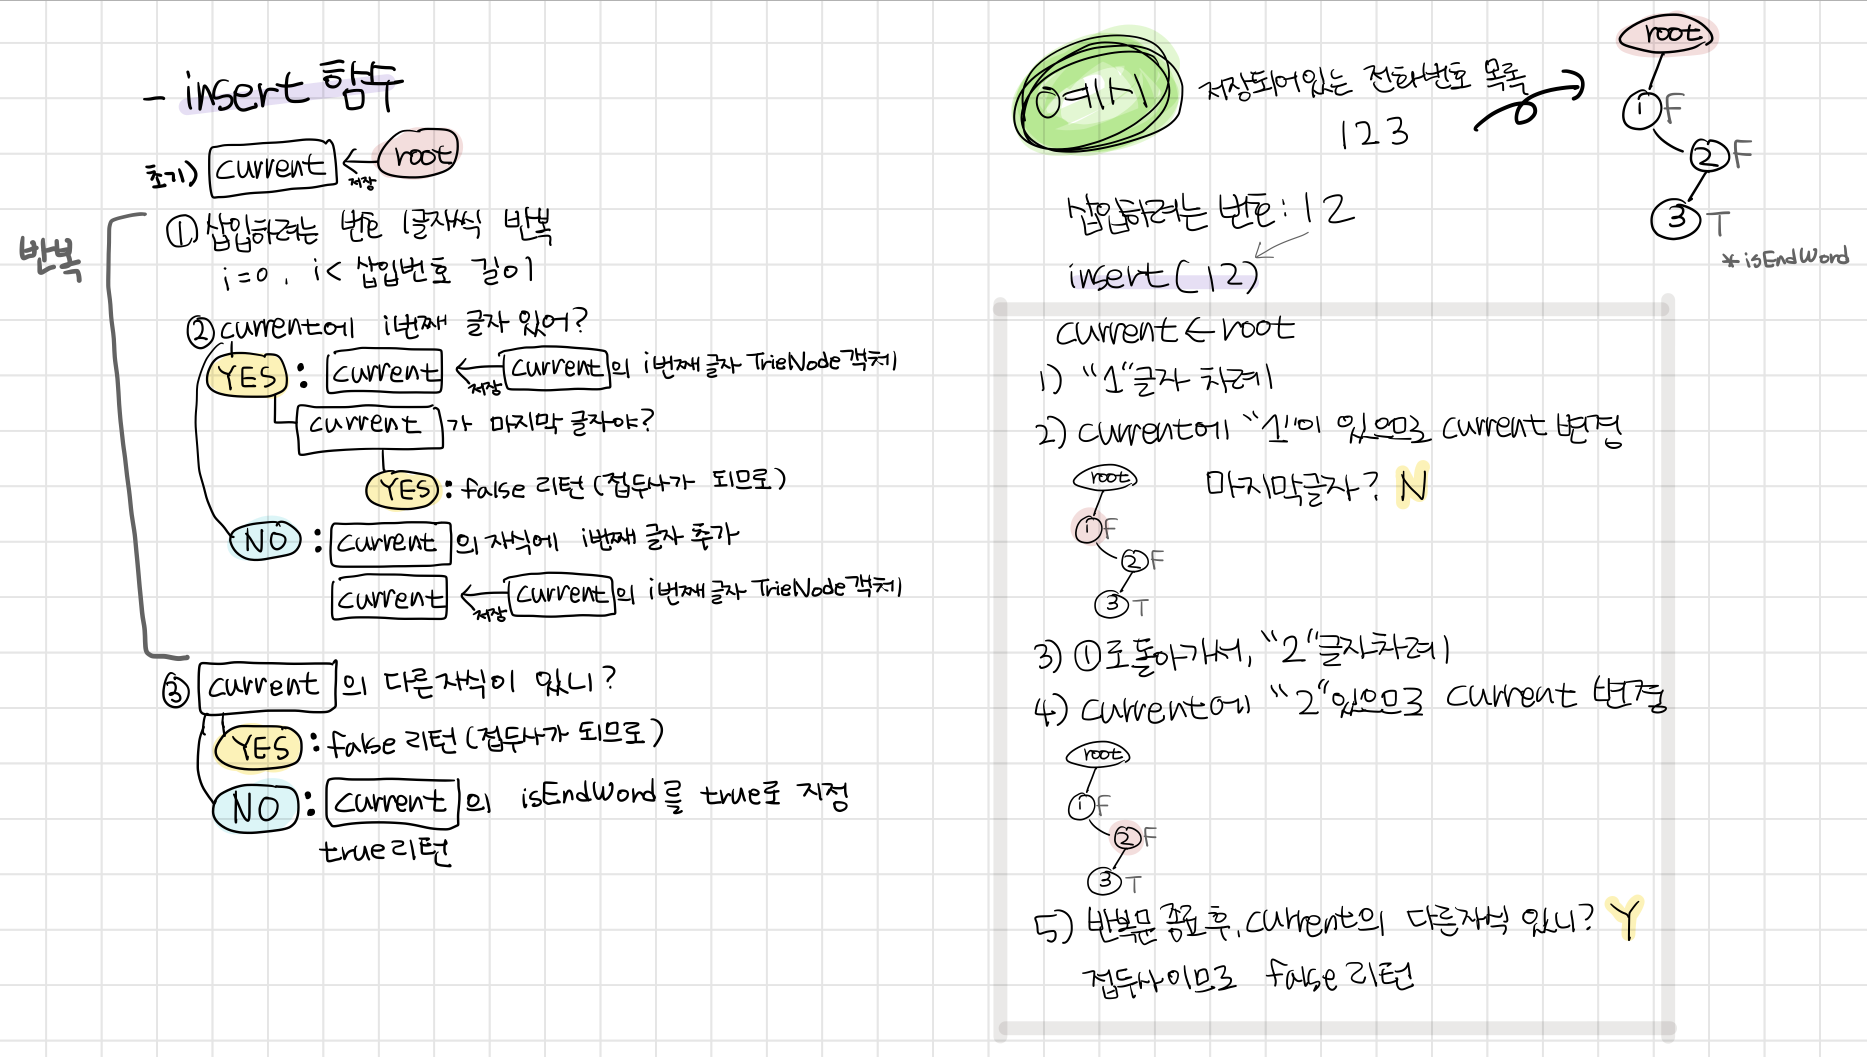 - insert 함수
초기) current ← root
저장
반복
① 삽입하려는 번호 1글자씩 반복
i=0, i< 삽입번호 길이
② current에 i번째 글자 있어?
YES : current ← current의 i번째 글자 TrieNode 객체
저장
current가 마지막 글자야?
YES : false 리턴 (접두사가 되므로)
NO : current의 자식에 i번째 글자 추가
current ← current의 i번째 글자 TrieNode 객체
저장
③ current의 다른 자식이 있니?
YES : false 리턴 (접두사가 되므로)
NO : current의 isEndWord를 true로 지정
true 리턴
예시
저장되어있는 전화번호 목록
123
root
1 F
2 F
3 T
* isEndWord
삽입하려는 번호: 12
insert(12)
current ← root
1) "1"글자 차례
2) current에 "1"이 있으므로 current 변경
마지막글자? N
root
1 F
2 F
3 T
3) ①로 돌아가서, "2"글자차례
4) current에 "2"있으므로 current 변경
root
1 F
2 F
3 T
5) 반복문 종료 후, current의 다른자식 있니? Y
접두사이므로 false 리턴